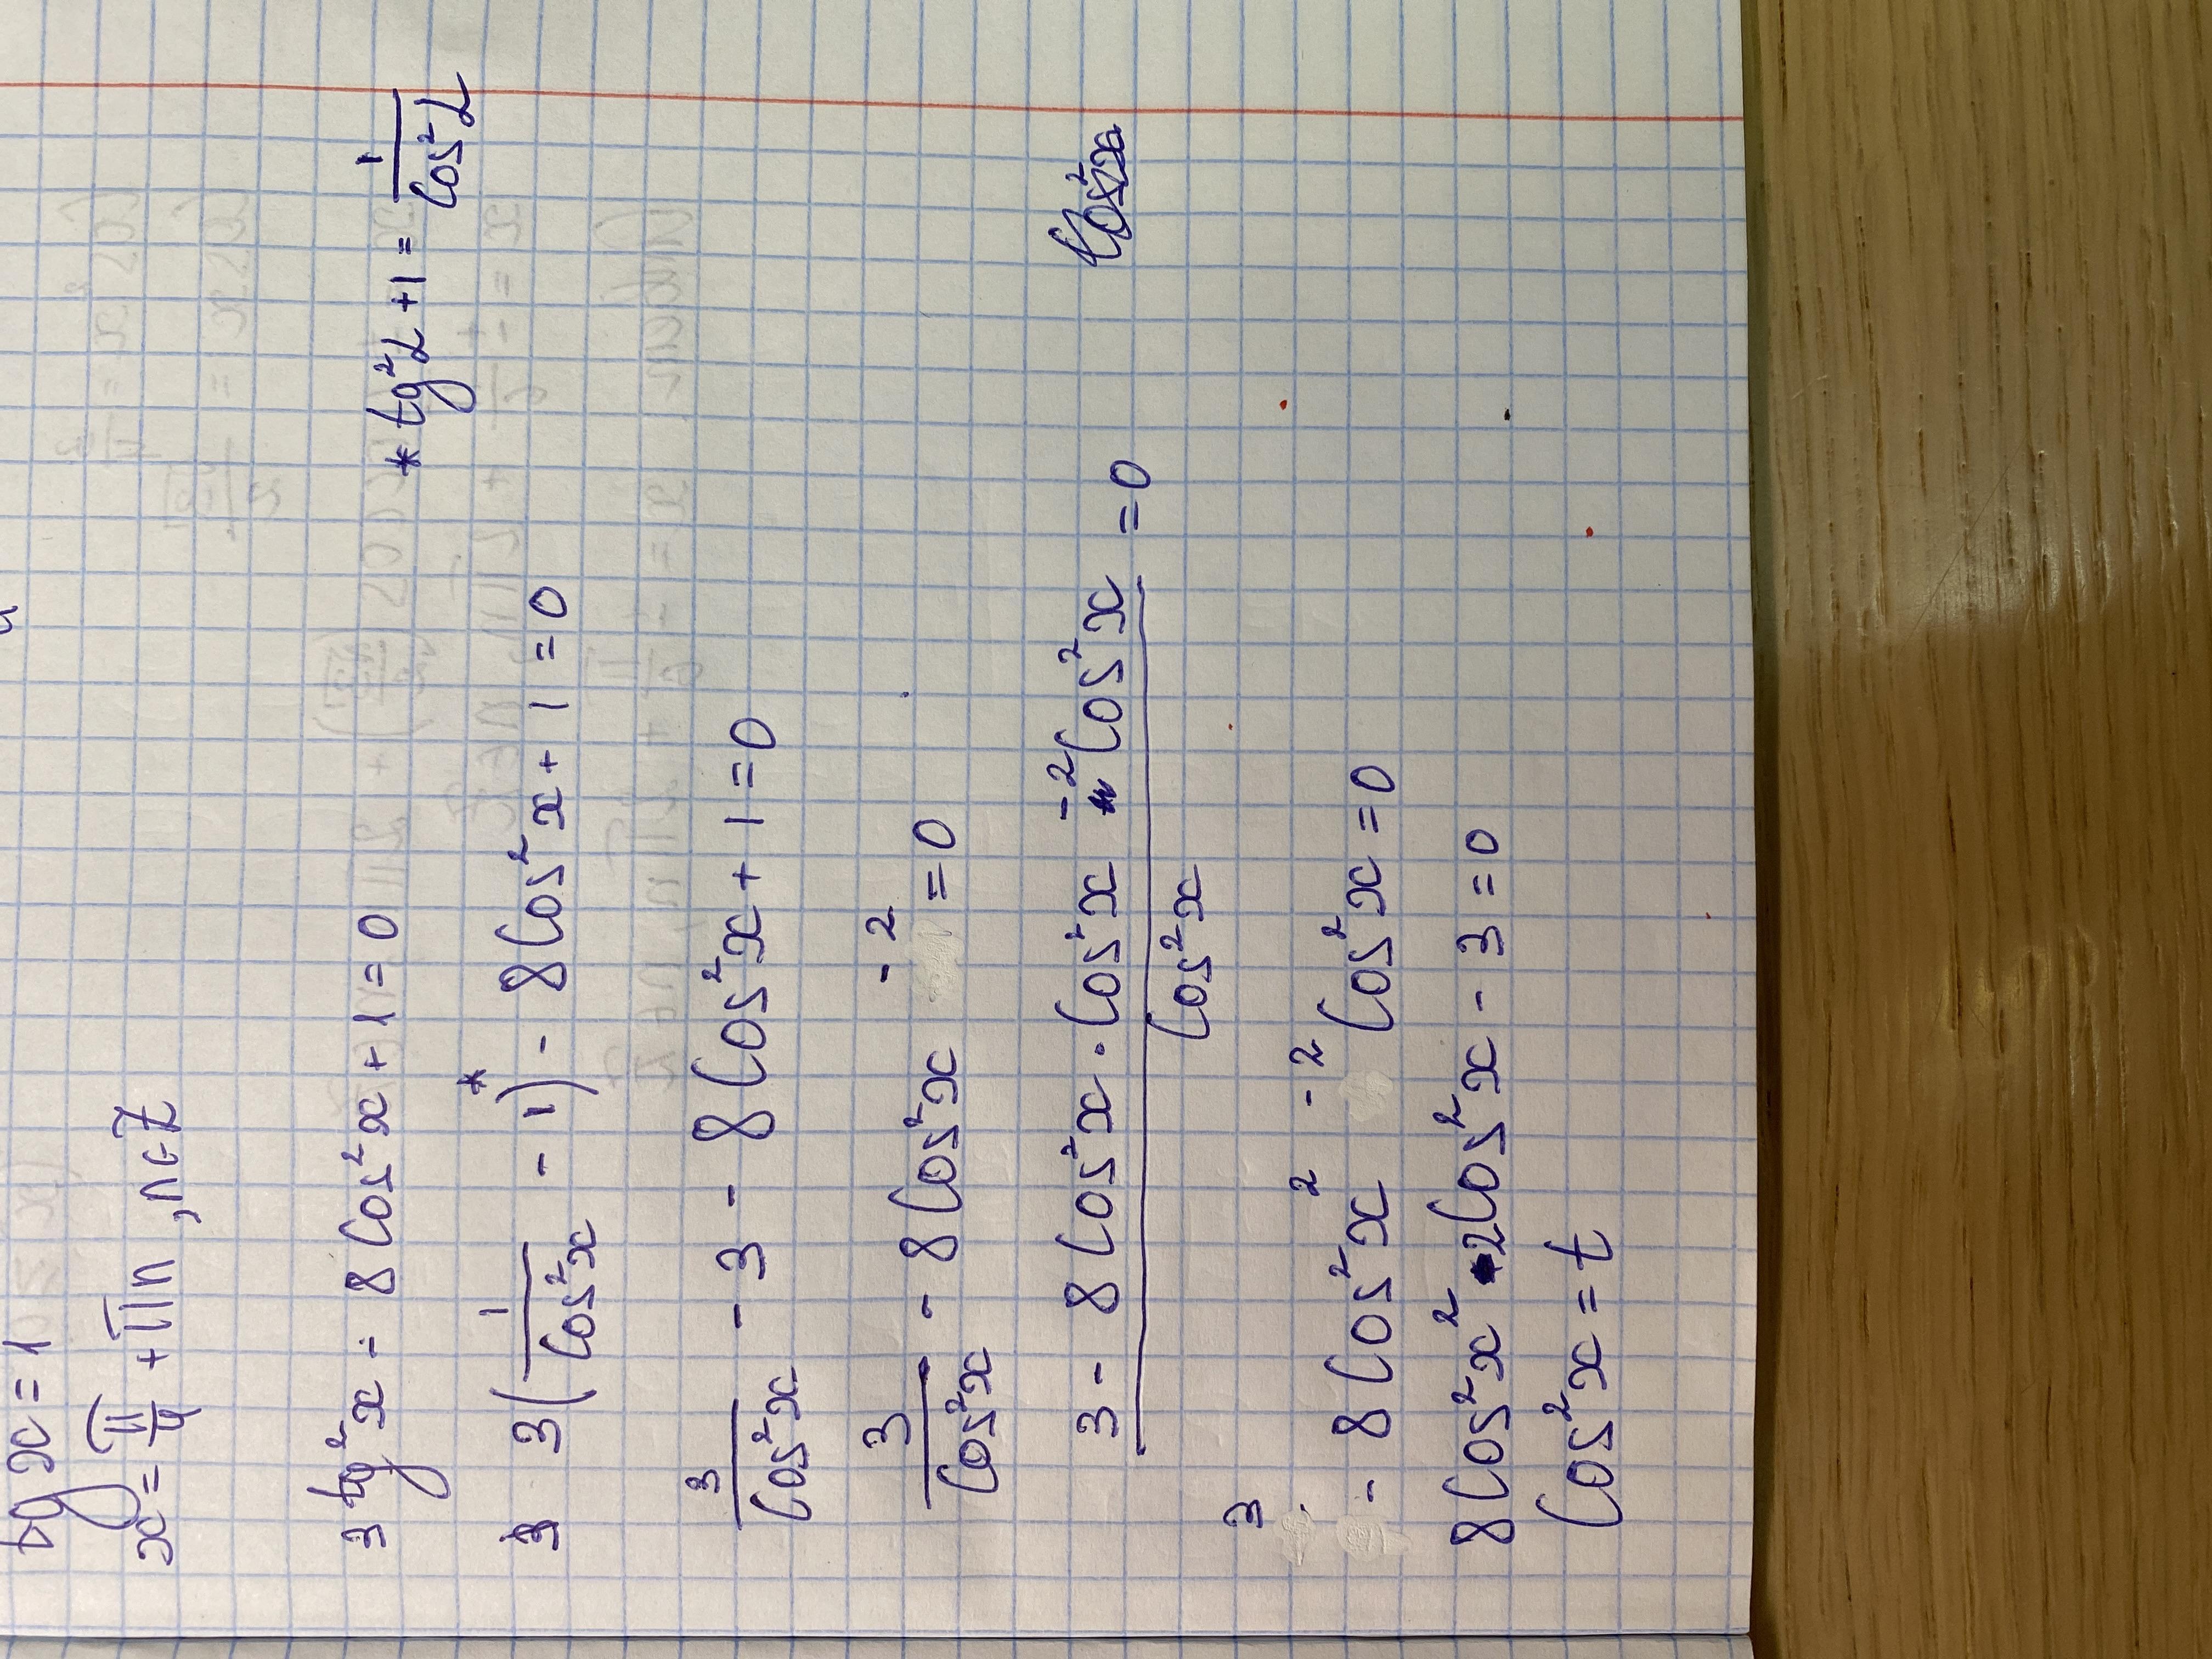 tg x = 1
x = π/4 + πn, n ∈ Z
3 tg²x - 8 cos²x + 1 = 0    * tg²α + 1 = 1/cos²α
3 3(1/cos²x - 1)* - 8 cos²x + 1 = 0
3/cos²x - 3 - 8 cos²x + 1 = 0
3/cos²x - 8 cos²x - 2 = 0
3 - 8 cos²x · cos²x - 2 cos²x / cos²x = 0
3 - 8 cos²x² - 2 cos²x = 0
8 cos²x² · 2 cos²x - 3 = 0
cos²x = t